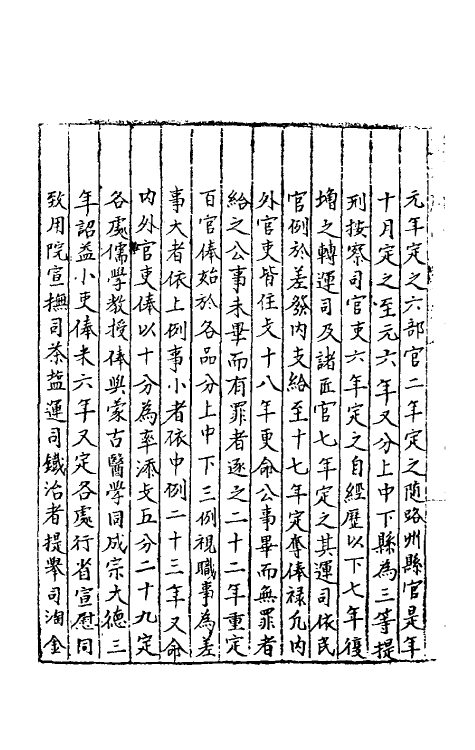 元年定之六部官二年定之隨路州縣官是年
十月定之至元六年又分上中下縣為三等提
刑按察司官吏六年定之自經歷以下七年復
增之轉運司及諸匠官七年定之其運司依民
官例於差發内支給至十七年定奪俸禄凡内
外官吏皆住支十八年更命公事畢而無罪者
給之公事未畢而有罪者逐之二十二年重定
百官俸始於各品分上中下三例視職事為差
事大者依上例事小者依中例二十三年又命
内外官吏俸以十分為率添支五分二十九定
各處儒學教授俸與蒙古醫學同成宗大德三
年詔益小吏俸米六年又定各處行省宣慰同
致用院宣撫司茶鹽運司鐵治者提舉司淘金